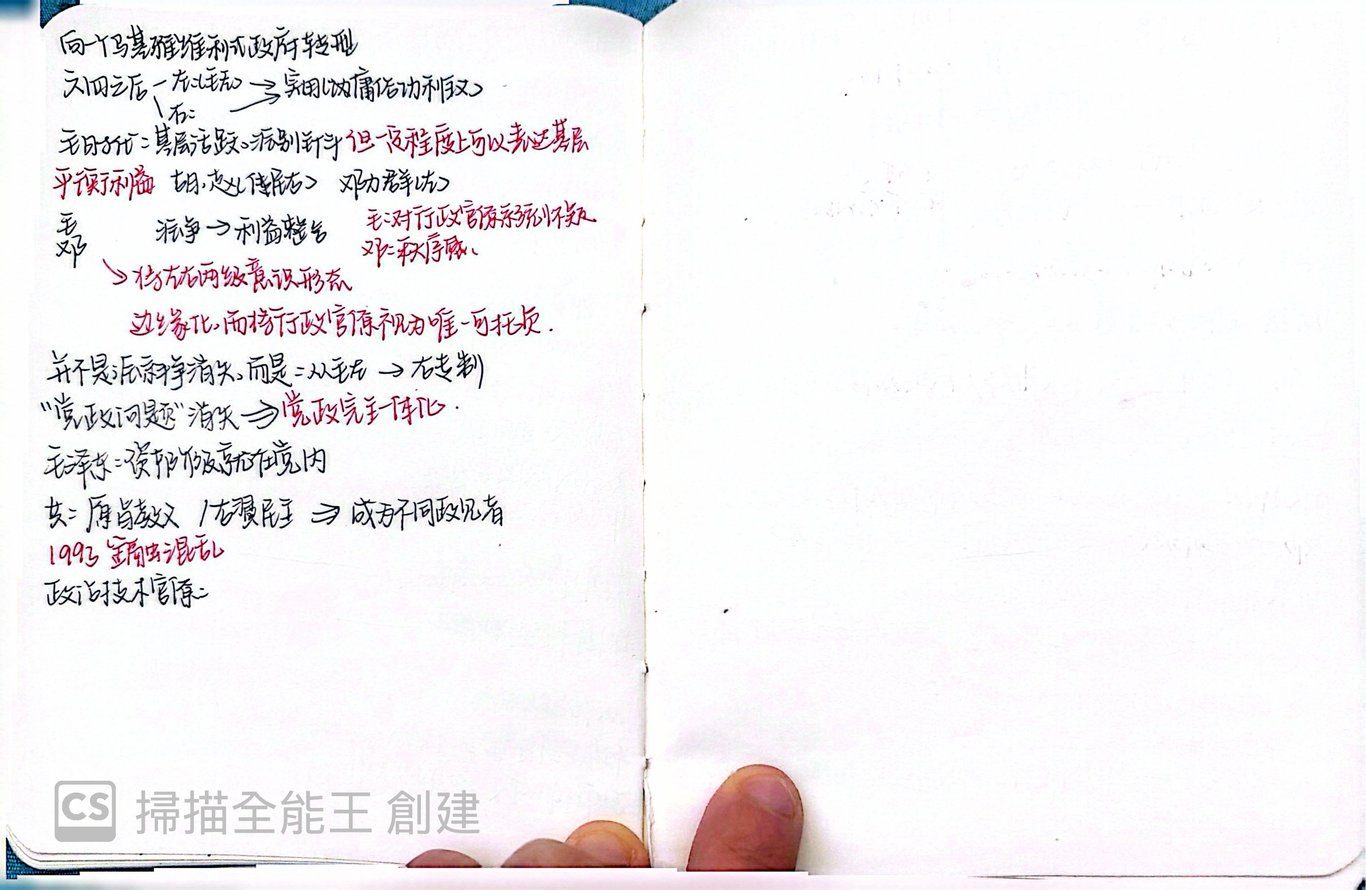 向一个马基雅维利式政府转型
六四之后 — 左(毛左) → 实用(以庸俗功利主义)
\ 右: →
毛时代: 基层活跃。派别斗争 但一定程度上可以表达基层
平衡利益 胡,赵(体民右) 邓力群(左)
毛 派争 → 利益整合 毛:对行政官僚系统怀疑
邓 邓:秩序感、
↘ 将左右两级意识形态
边缘化,而将行政官僚视为唯一可托负.
并不是派系斗争消失,而是:从毛左 → 右专制
"党政问题"消失 ⇒ 党政完全一体化.
毛泽东:资产阶级就在党内
共: 原旨教义 / 右翼民主 ⇒ 成为不同政见者
1993 混乱
政治技术官僚:
CS 掃描全能王 創建